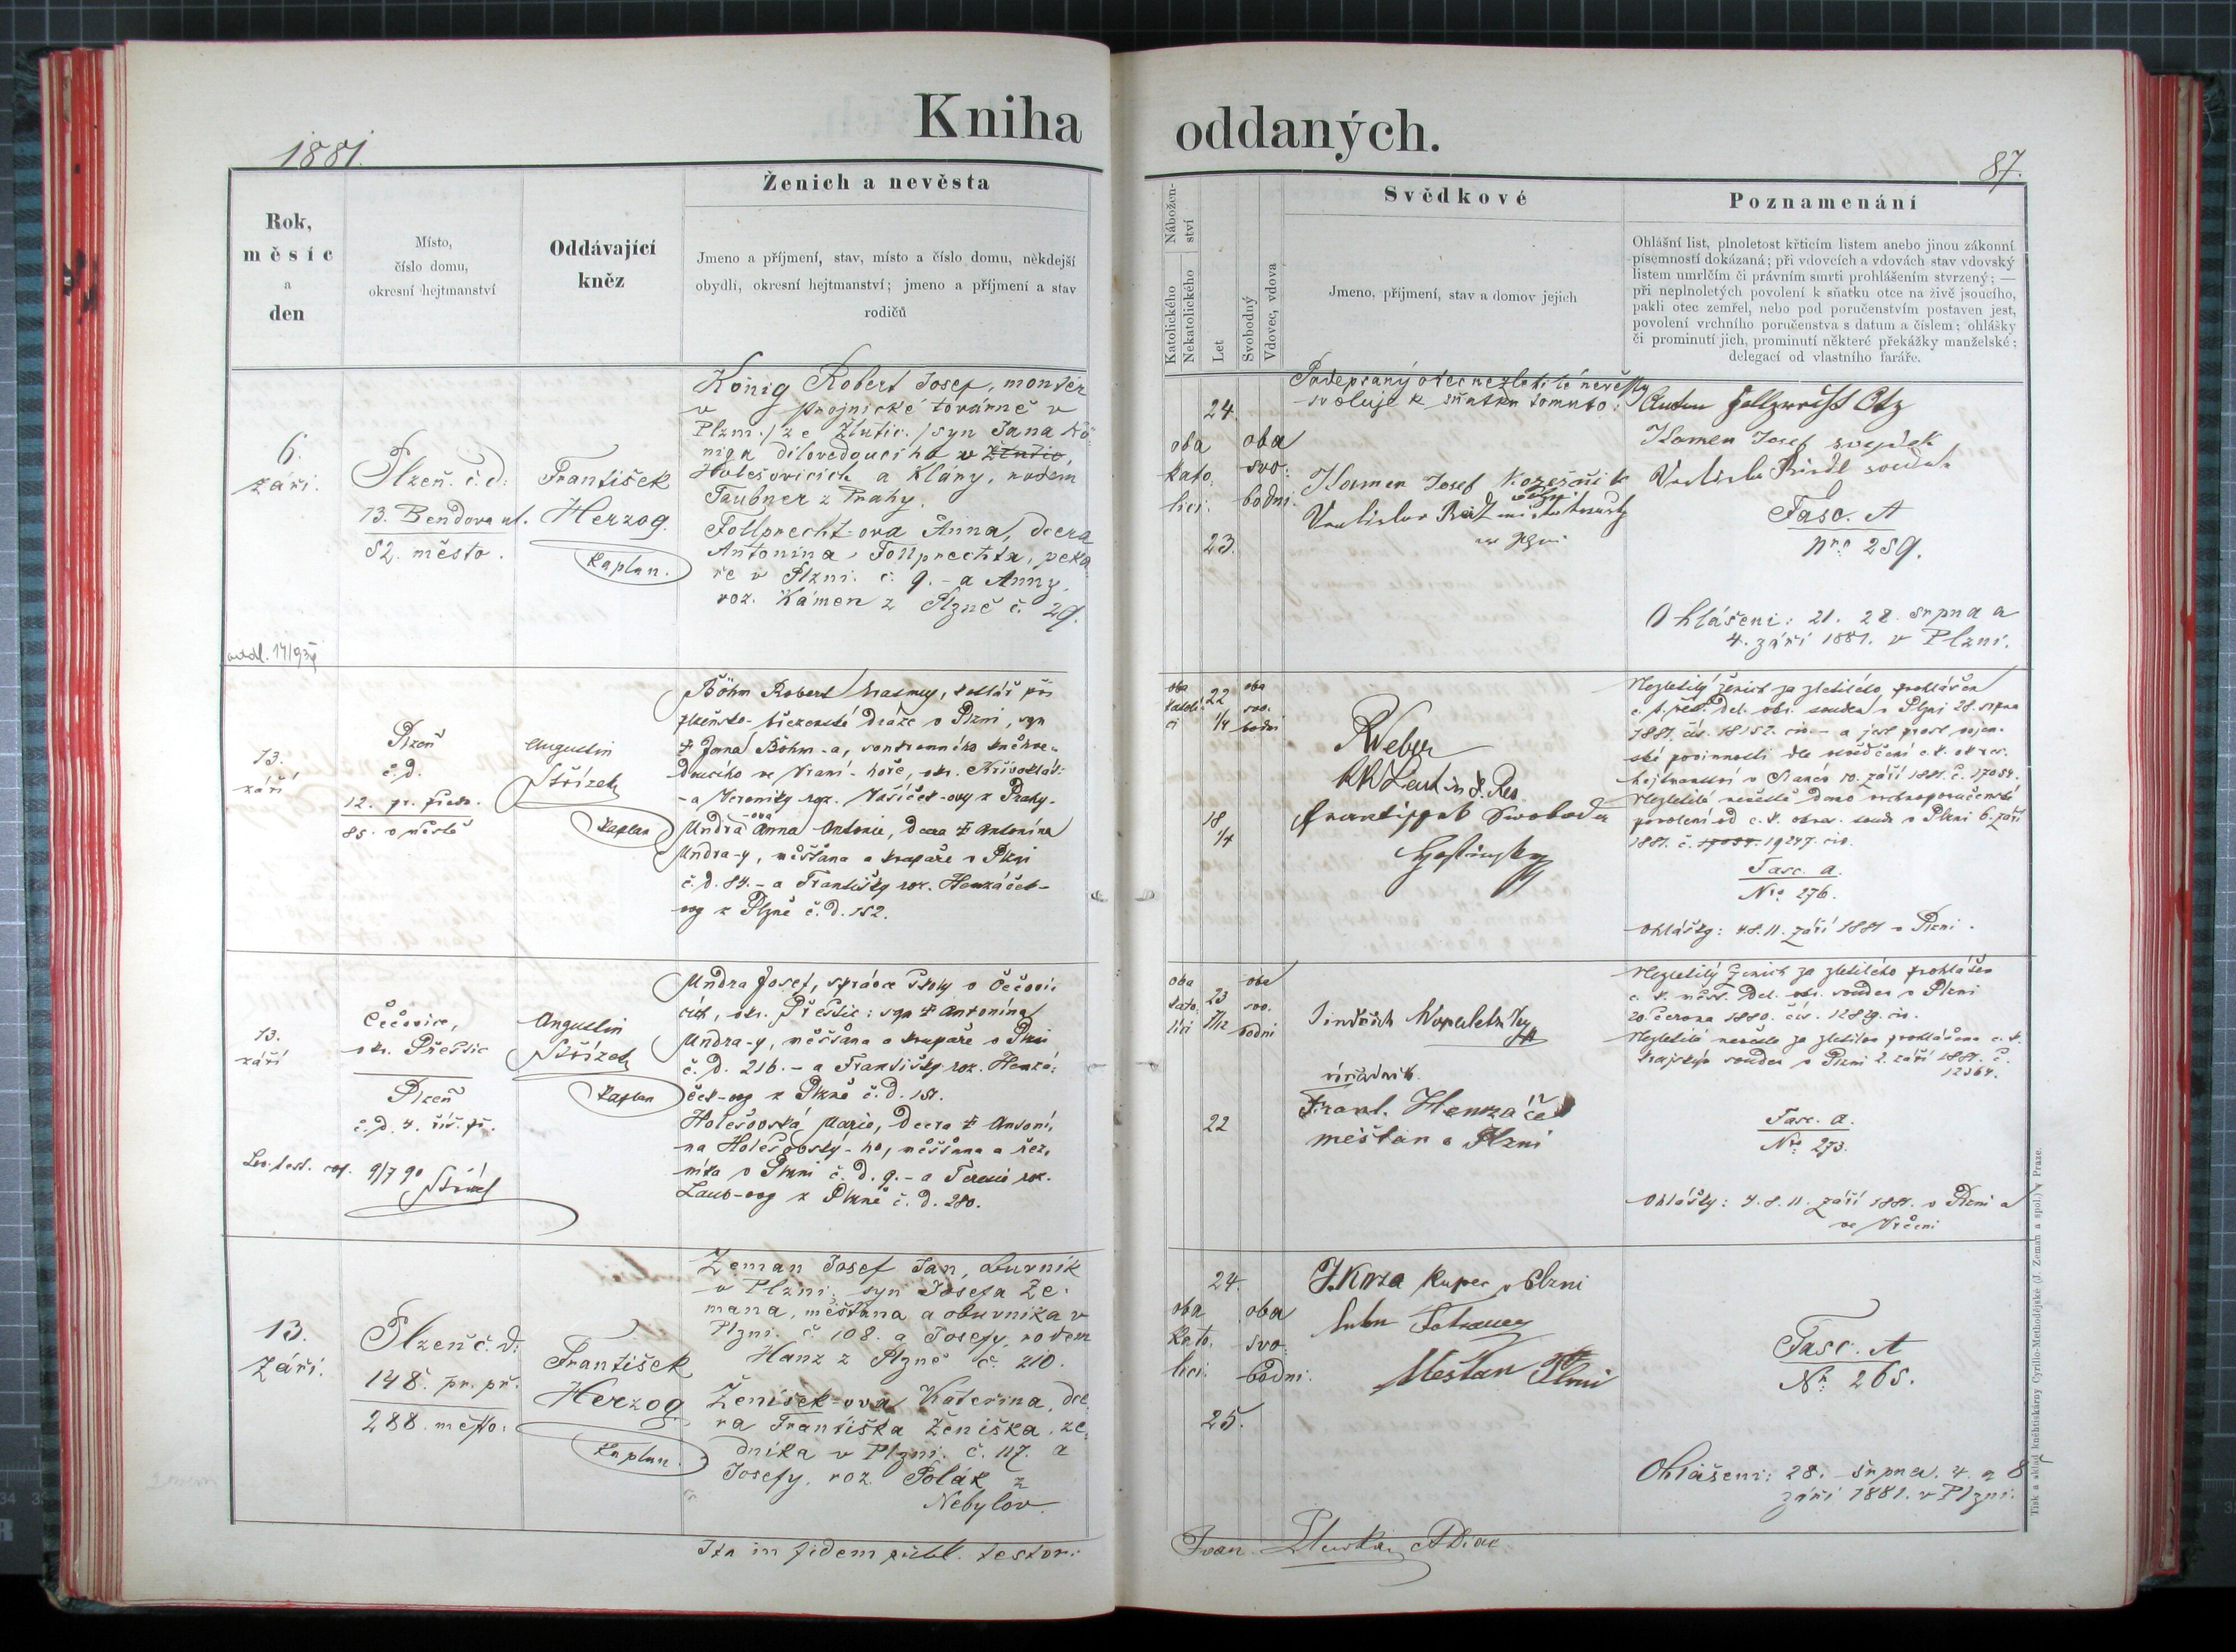 Kniha oddaných.
1881.
87.
Rok,
měsíc
a
den
Místo,
číslo domu,
okresní hejtmanství
Oddávající
kněz
Ženich a nevěsta
Jmeno a příjmení, stav, místo a číslo domu, někdejší
obydlí, okresní hejtmanství; jmeno a příjmení a stav
rodičů
Nábožen-
ství
Katolického
Nekatolického
Let
Svobodný
Vdovec, vdova
Svědkové
Jmeno, příjmení, stav a domov jejich
Poznamenání
Ohlášní list, plnoletost křticím listem anebo jinou zákonní
písemností dokázaná; při vdovcích a vdovách stav vdovský
listem umrlčím či právním smrti prohlášením stvrzený; —
při neplnoletých povolení k sňatku otce na živě jsoucího,
pakli otec zemřel, nebo pod poručenstvím postaven jest,
povolení vrchního poručenstva s datum a číslem; ohlášky
či prominutí jich, prominutí některé překážky manželské;
delegací od vlastního faráře.
6.
září.
Plzeň. č. d:
13. Bendova ul.
82. město.
František
Herzog.
Kaplan.
König Robert Josef, montér
v pojnické továrně v
Plzni. / ze Žlutic. / syn Jana Kö-
niga dílovedoucího v Žlutic,
Holešovicích a Kláry, rodem
Taubner z Prahy.
Follprecht-ova Anna, dcera
Antonína Follprechta, peka-
ře v Plzni. č. 9. - a Anny,
roz. Kámen z Plzně č. 29.
24.
oba
kato.
lici.
oba
svo:
bodni.
23.
Podepsaný otec nezletilé nevěsty
svoluje k sňatku tomuto:
Kamen Josef
Kamen Josef svědek
Fasc. A
nro 259.
Ohlášení: 21. 28. srpna a
4. září 1881. v Plzni.
13.
září
Plzeň
č. d.
12. pr. předm.
85. v městě
Augustin
Střízek
Kaplan
Böhm Robert Erasmus, kotlář při
plzeňsko-březenské dráze v Plzni, syn
† Jana Böhm-a, soukromního
a Veroniky roz. Vašíček-ovy z Prahy.
Undra-ova Anna Antonie, dcera † Antonína
Undra-y, měšťana a krupaře v Plzni
č. d. 84. - a Františky roz. Henzáček-
ovy z Plzně č. d. 152.
oba
katoli-
ci
22
1/4
oba
svo.
bodni
18
1/4
RWeber
Nezletilý ženich za zletilého prohlášen
c. k. měst. del. okr. soudem v Plzni 28. srpna
1881. čís. 18152. civ. - a jest prost vojen-
ské povinnosti dle osvědčení c. k. okres.
hejtmanství v Slaném 10. září 1881. č. 17054.
Nezletilé nevěstě dáno vrchnoporučenské
povolení od c. k. okres. soudu v Plzni 6. září
1881. č. 17054. 19247. civ.
Fasc. a.
Nro 276.
Ohlášky: 4. 8. 11. září 1881 v Plzni.
13.
září
Čečovice,
okr. Přeštic
Plzeň
č. d. 4. říš. př.
9/7 90
Augustin
Střízek
Kaplan
Undra Josef, správce školy v Čečovi-
cích, okr. Přeštic: syn † Antonína
Undra-y, měšťana a krupaře v Plzni
č. d. 216. - a Františky roz. Henzá-
ček-ovy z Plzně č. d. 151.
Holešovská Marie, dcera † Antoní-
na Holešovský-ho, měšťana a řez-
níka v Plzni č. d. 9. - a Terezie roz.
Laub-ovy z Plzně č. d. 280.
oba
kato.
lici
23
7/12
oba
svo.
bodni
22
Jindřich Kopaletzky
Frant. Henzáček
měšťan v Plzni
Nezletilý ženich za zletilého prohlášen
c. k. měst. del. okr. soudem v Plzni
20. června 1880. čís. 12829. civ.
Nezletilá nevěsta za zletilou prohlášena c. k.
krajským soudem v Plzni 2. září 1881. č.
12364.
Fasc. a.
Nro 273.
Ohlášky: 4. 8. 11. září 1881. v Plzni a
ve Vrčeni
13.
Září.
Plzeň č. d:
148. pr. př.
288. město.
František
Herzog
Kaplan.
Zeman Josef Jan, obuvník
v Plzni, syn Josefa Ze-
mana, měšťana a obuvníka v
Plzni. č. 108. a Josefy, rodem
Hanz z Plzně č. 210.
Ženíšek-ova Kateřina, dce-
ra Františka Ženíška, ze-
dníka v Plzni. č. 117. a
Josefy, roz. Polák z
Nebylov.
24.
oba
kato.
lici.
oba
svo:
bodni.
25.
J. Krza kupec v Plzni
Měšťan Plzni
Fasc. A
No: 265.
Ohlášení: 28. srpna. 4. a 8
září 1881. v Plzni.
Ita in fidem publ. testor:
Tisk a sklad kněhtiskárny Cyrillo-Methodějské (J. Zeman a spol.) v Praze.